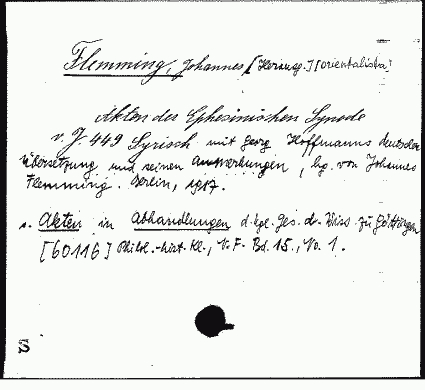 Flemming, Johannes [Herausg.] [orientalista]
Akten der Ephesinischen Synode
v. J. 449 Syrisch mit Georg Hoffmanns deutscher
Übersetzung und seinen Anmerkungen, hg. von Johannes
Flemming. Berlin, 1917.
s. Akten in Abhandlungen d. kgl. Ges. d. Wiss. zu Göttingen
[60116] Philol.-hist. Kl., N. F. Bd. 15., No. 1.
S